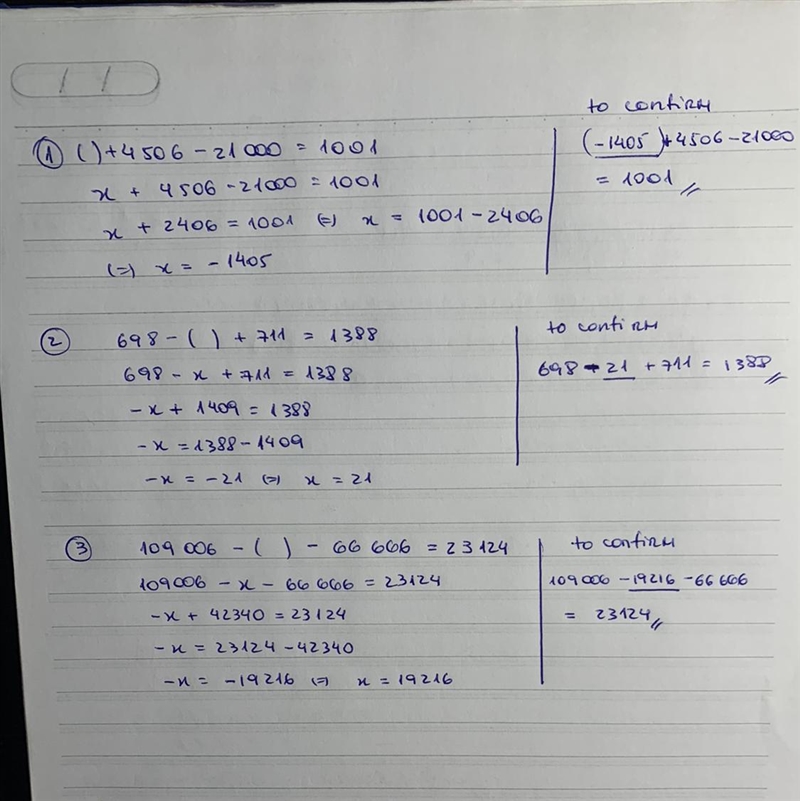 11
① ( ) + 4506 - 21000 = 1001
x + 4506 - 21000 = 1001
x + 2406 = 1001 (=) x = 1001 - 2406
(=) x = - 1405
to confirm
(-1405) + 4506 - 21000
= 1001 //
② 698 - ( ) + 711 = 1388
698 - x + 711 = 1388
-x + 1409 = 1388
-x = 1388 - 1409
-x = -21 (=) x = 21
to confirm
698 - 21 + 711 = 1388 //
③ 109 006 - ( ) - 66 666 = 23124
109006 - x - 66 666 = 23124
-x + 42340 = 23124
-x = 23124 - 42340
-x = -19216 (=) x = 19216
to confirm
109006 - 19216 - 66 666
= 23124 //